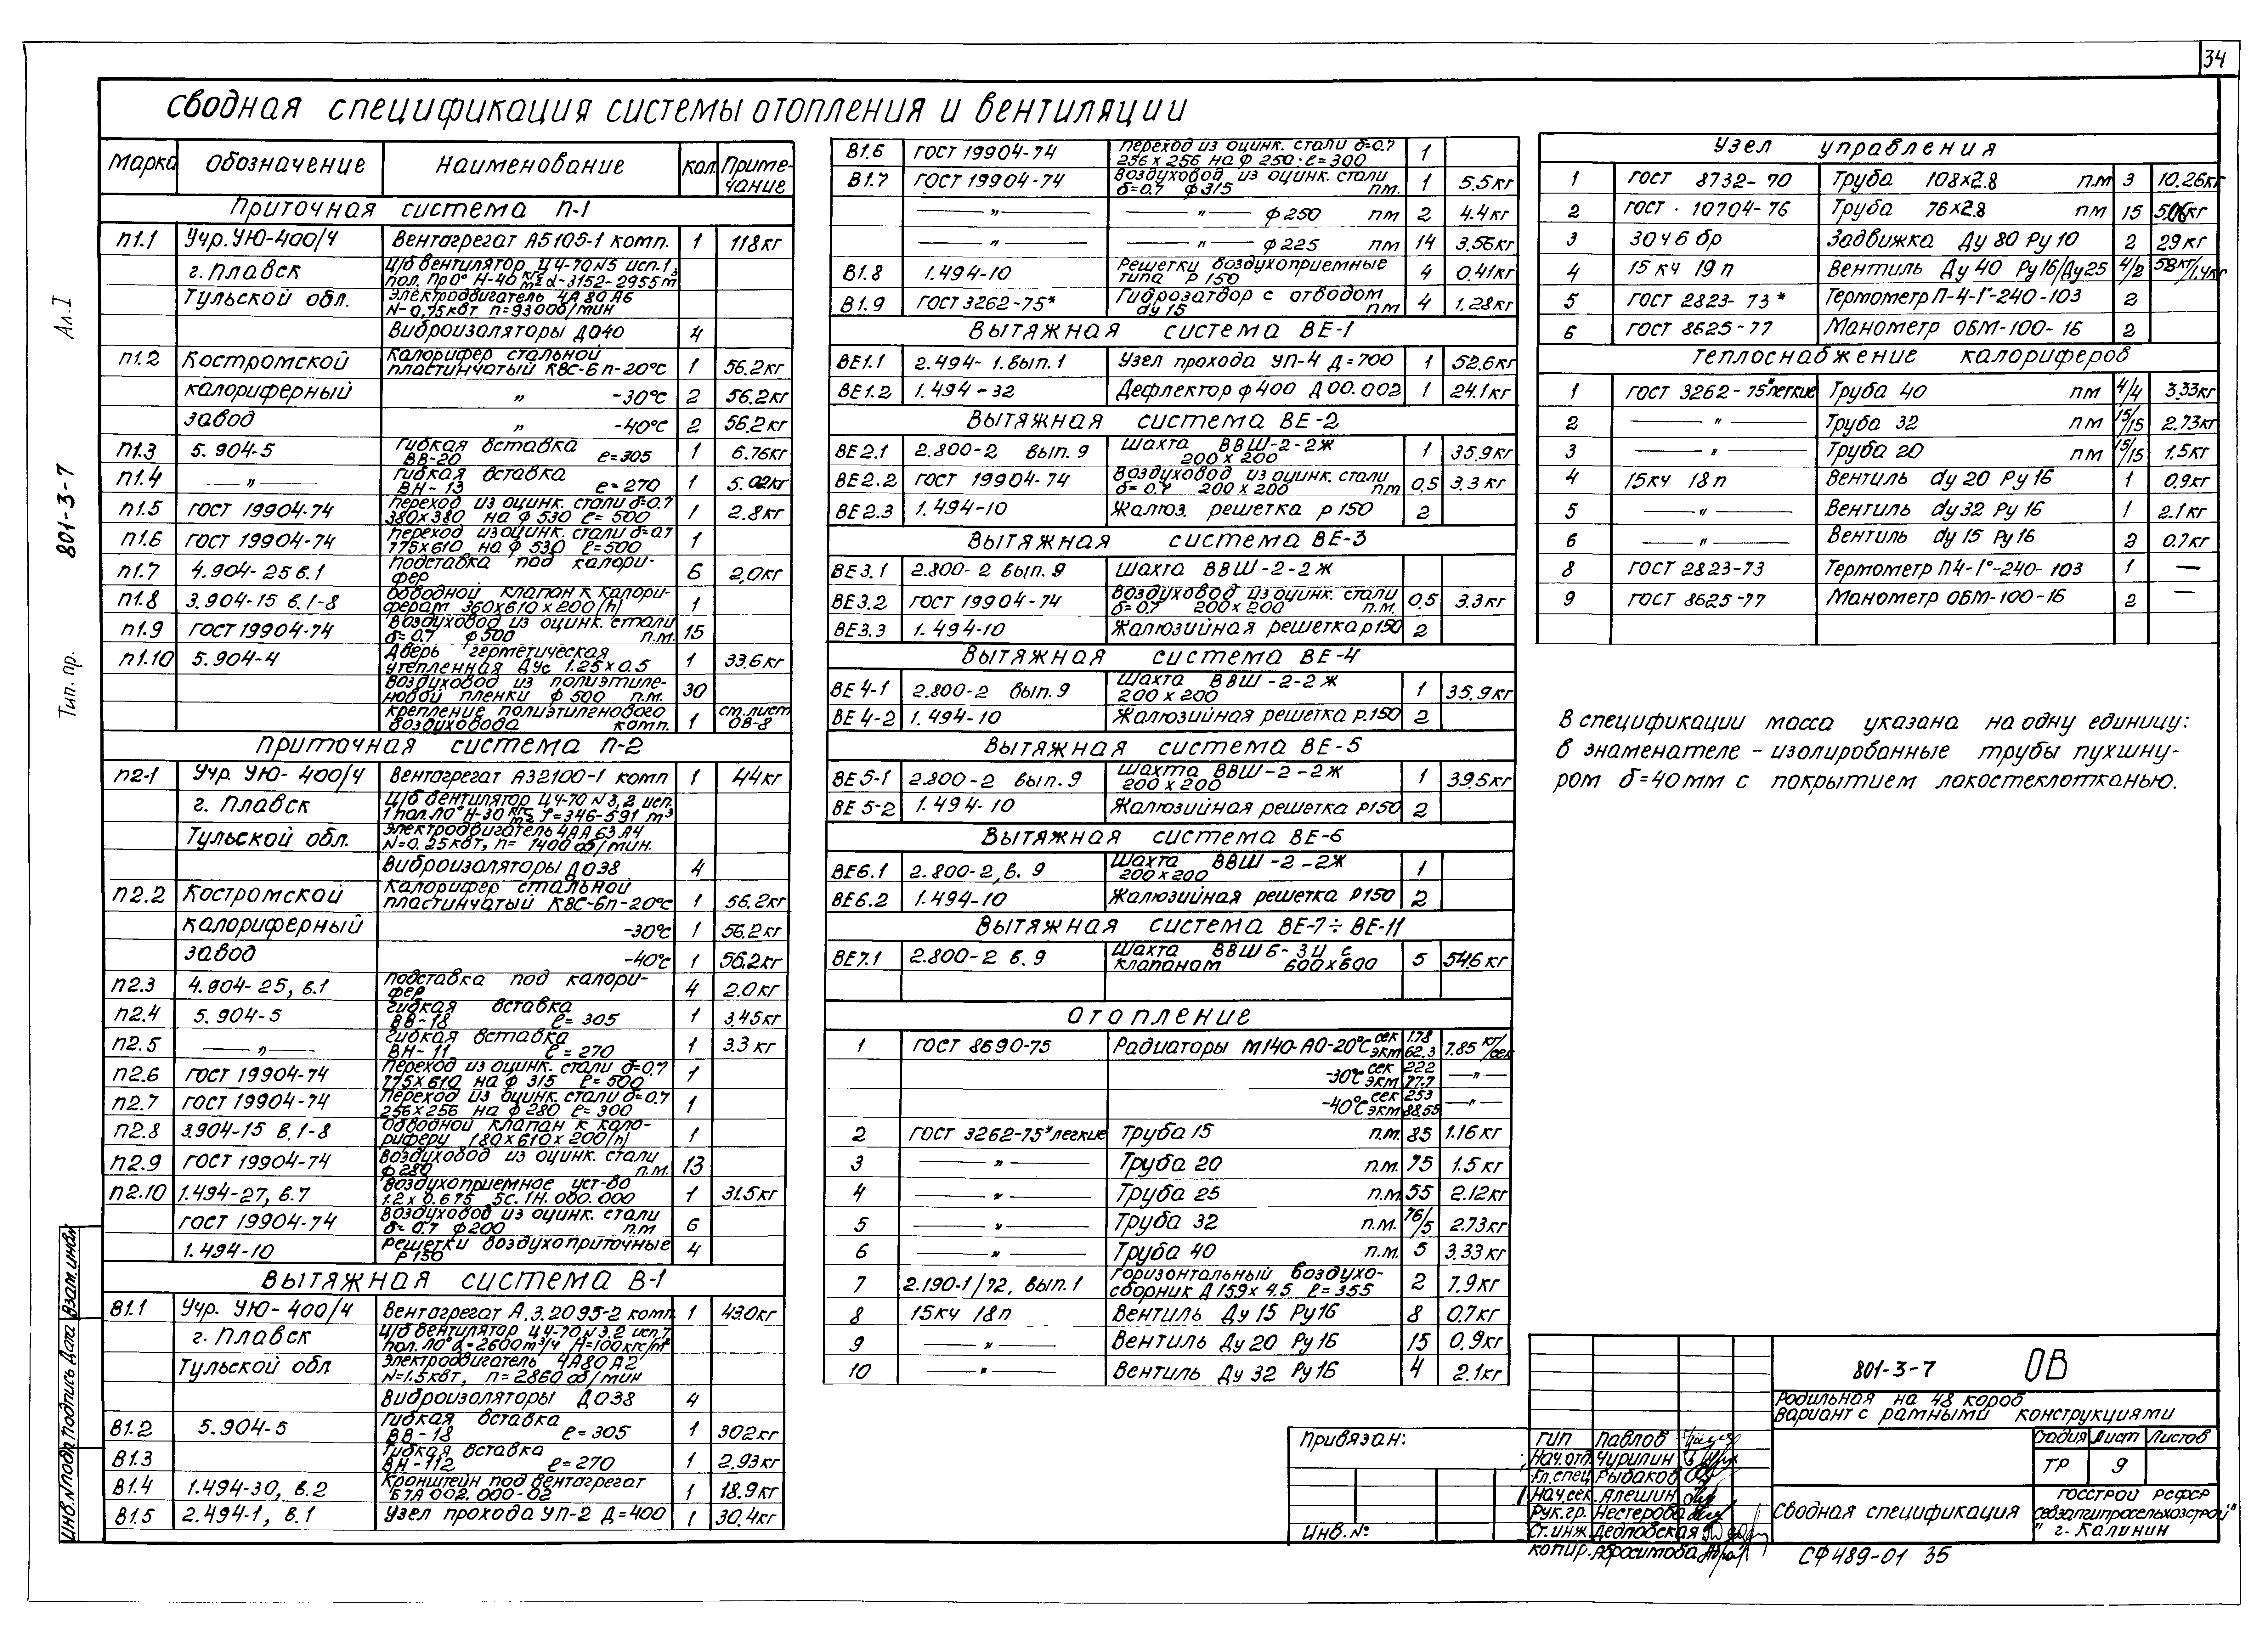 34
Сводная спецификация системы отопления и вентиляции
Марка Обозначение Наименование Кол. Приме-
чание
Приточная система П-1
П1.1 Учр. УЮ-400/4 Вентагрегат А5105-1 комп. 1 118кг
г. Плавск Ц/б вентилятор Ц4-70 N5 исп.1
пол. Пр0°
Тульской обл. Электродвигатель 4А80А6
N-0,75квт n=930об/мин
Виброизоляторы Д040 4
П1.2 Костромской Калорифер стальной
пластинчатый КВС-6п-20°С 1 56.2кг
калориферный " -30°С 2 56.2кг
завод " -40°С 2 56.2кг
П1.3 5.904-5 Гибкая вставка
ВВ-20 ℓ=305 1 6.76кг
П1.4 —"— Гибкая вставка
ВН-13 ℓ=270 1 5.02кг
П1.5 ГОСТ 19904-74 Переход из оцинк. стали δ=0.7
380х380 на ф 530 ℓ=500 1 2.8кг
П1.6 ГОСТ 19904-74 Переход из оцинк. стали δ=0.7
775х610 на ф 530 ℓ=500 1
П1.7 4.904-25 в.1 Подставка под калори-
фер 6 2,0кг
П1.8 3.904-15 в.1-8 Обводной клапан к калори-
ферам 360х610х200(h) 1
П1.9 ГОСТ 19904-74 Воздуховод из оцинк. стали
δ=0.7 ф500 п.м. 15
П1.10 5.904-4 Дверь герметическая
утепленная ДУс 1.25х0.5 1 33.6кг
Воздуховод из полиэтиле-
новой пленки ф 500 п.м. 30
Крепление полиэтиленового
воздуховода комп. 1 ст.лист
ОВ-8
Приточная система П-2
П2-1 Учр. УЮ-400/4 Вентагрегат А32100-1 комп 1 44кг
г. Плавск Ц/б вентилятор Ц4-70 N 3,2 исп.
Тульской обл. Электродвигатель 4АА63А4
N=0.25квт, n= 1400 об/мин.
Виброизоляторы Д038 4
П2.2 Костромской Калорифер стальной
пластинчатый КВС-6п-20°С 1 56.2кг
калориферный -30°С 1 56.2кг
завод -40°С 1 56.2кг
П2.3 4.904-25, в.1 Подставка под калори-
фер 4 2.0кг
П2.4 5.904-5 Гибкая вставка
ВВ-18 ℓ=305 1 3.45кг
П2.5 —"— Гибкая вставка
ВН-11 ℓ=270 1 3.3 кг
П2.6 ГОСТ 19904-74 Переход из оцинк. стали δ=0.7
775х610 на ф 315 ℓ=500 1
П2.7 ГОСТ 19904-74 Переход из оцинк. стали δ=0.7
256х256 на ф 280 ℓ=300 1
П2.8 3.904-15 в.1-8 Обводной клапан к кало-
риферу 180х610х200(h) 1
П2.9 ГОСТ 19904-74 Воздуховод из оцинк. стали
ф 280 п.м. 13
П2.10 1.494-27, в.7 Воздухоприемное уст-во
1.2х0.675 5С.1Н.000.000 1 31.5кг
ГОСТ 19904-74 Воздуховод из оцинк. стали
δ=0.7 ф200 п.м 6
1.494-10 Решетки воздухоприточные
Р150 4
Вытяжная система В-1
В1.1 Учр. УЮ-400/4 Вентагрегат А.3.2095-2 комп. 1 43.0кг
г. Плавск Ц/б вентилятор Ц4-70 N 3.2 исп.1
пол. Л0° α=2600m³/ч H=100кгс/м²
Тульской обл Электродвигатель 4А80А2
N=1.5квт, n=2860 об/мин
Виброизоляторы Д038 4
В1.2 5.904-5 Гибкая вставка
ВВ-18 ℓ=305 1 3.02кг
В1.3 Гибкая вставка
ВН-112 ℓ=270 1 2.93кг
В1.4 1.494-30, в.2 Кронштейн под вентагрегат
Б7А 002.000-02 1 18.9кг
В1.5 2.494-1, в.1 Узел прохода УП-2 Д=400 1 30.4кг
В1.6 ГОСТ 19904-74 Переход из оцинк. стали δ=0.7
256х256 на ф 250. ℓ=300 1
В1.7 ГОСТ 19904-74 Воздуховод из оцинк. стали
δ=0.7 ф315 п.м. 1 5.5кг
—"— —"— ф250 пм 2 4.4кг
—"— —"— ф225 пм 14 3.56кг
В1.8 1.494-10 Решетки воздухоприемные
типа Р 150 4 0.41кг
В1.9 ГОСТ 3262-75* Гидрозатвор с отводом
dу 15 пм 4 1.28кг
Вытяжная система ВЕ-1
ВЕ1.1 2.494-1.вып.1 Узел прохода УП-4 Д=700 1 52.6кг
ВЕ1.2 1.494-32 Дефлектор ф400 Д00.002 1 24.1кг
Вытяжная система ВЕ-2
ВЕ2.1 2.800-2 вып.9 Шахта ВВШ-2-2Ж
200х200 1 35.9кг
ВЕ2.2 ГОСТ 19904-74 Воздуховод из оцинк. стали
δ=0.7 200х200 пм 0.5 3.3 кг
ВЕ2.3 1.494-10 Жалюз. решетка Р150 2
Вытяжная система ВЕ-3
ВЕ3.1 2.800-2 вып.9 Шахта ВВШ-2-2Ж
ВЕ3.2 ГОСТ 19904-74 Воздуховод из оцинк. стали
δ=0.7 200х200 п.м. 0.5 3.3кг
ВЕ3.3 1.494-10 Жалюзийная решетка Р150 2
Вытяжная система ВЕ-4
ВЕ4-1 2.800-2 вып.9 Шахта ВВШ-2-2Ж
200х200 1 35.9кг
ВЕ4-2 1.494-10 Жалюзийная решетка Р.150 2
Вытяжная система ВЕ-5
ВЕ5-1 2.800-2 вып.9 Шахта ВВШ-2-2Ж
200х200 1 39.5кг
ВЕ5-2 1.494-10 Жалюзийная решетка Р150 2
Вытяжная система ВЕ-6
ВЕ6.1 2.800-2, в.9 Шахта ВВШ-2-2Ж
200х200 1
ВЕ6.2 1.494-10 Жалюзийная решетка Р150 2
Вытяжная система ВЕ-7÷ВЕ-11
ВЕ7.1 2.800-2 в.9 Шахта ВВШ6-3Ц с
клапаном 600х600 5 54.6 кг
Отопление
1 ГОСТ 8690-75 Радиаторы М140-АО-20°С сек 178
экм 62.3 7.85 кг/сек
-30°С сек 222
экм 77.7 —"—
-40°С сек 253
экм 88.55 —"—
2 ГОСТ 3262-75* легкие Труба 15 п.м. 85 1.16кг
3 —"— Труба 20 п.м. 75 1.5 кг
4 —"— Труба 25 п.м. 55 2.12кг
5 —"— Труба 32 п.м. 76/5 2.73кг
6 —"— Труба 40 п.м. 5 3.33 кг
7 2.190-1/72, вып.1 Горизонтальный воздухо-
сборник Д159х4.5 ℓ=355 2 7.9кг
8 15кч 18п Вентиль Ду 15 Ру16 8 0.7кг
9 —"— Вентиль Ду 20 Ру16 15 0.9кг
10 —"— Вентиль Ду 32 Ру16 4 2.1кг
Узел управления
1 ГОСТ 8732-70 Труба 108х2.8 п.м 3 10.26кг
2 ГОСТ 10704-76 Труба 76х2.8 пм 15 5.06кг
3 30ч6 бр Задвижка Ду 80 Ру 10 2 29 кг
4 15кч 19п Вентиль Ду 40 Ру16/Ду25 4/2 5.8кг/1.4кг
5 ГОСТ 2823-73* Термометр П-4-1°-240-103 2
6 ГОСТ 8625-77 Манометр ОБМ-100-16 2
Теплоснабжение калориферов
1 ГОСТ 3262-75* легкие Труба 40 пм 4/4 3.33кг
2 —"— Труба 32 пм 15/15 2.73кг
3 —"— Труба 20 пм 15/15 1.5кг
4 15кч 18п Вентиль dу 20 Ру 16 1 0.9кг
5 —"— Вентиль dу32 Ру 16 1 2.1кг
6 —"— Вентиль dу 15 Ру16 2 0.7кг
8 ГОСТ 2823-73 Термометр П4-1°-240-103 1 —
9 ГОСТ 8625-77 Манометр ОБМ-100-16 2 —
В спецификации масса указана на одну единицу:
в знаменателе – изолированные трубы пухшну-
ром δ=40мм с покрытием лакостеклотканью.
Тип. пр. 801-3-7 Ал.I
Инв.N подл Подпись Дата Взам.инв.N
Привязан:
Инв.№
ГИП Павлов
Нач.отд. Чурилин
Гл.спец. Рыбаков
Нач.сек. Алешин
Рук.гр. Нестерова
Ст.инж. Дедловская
Копир. Абросимова
801-3-7 ОВ
Родильная на 48 коров
Вариант с рамными конструкциями
Стадия Лист Листов
ТР 9
Сводная спецификация
Госстрой РСФСР
Севзапгипросельхозстрой"
г. Калинин
СФ489-01 35